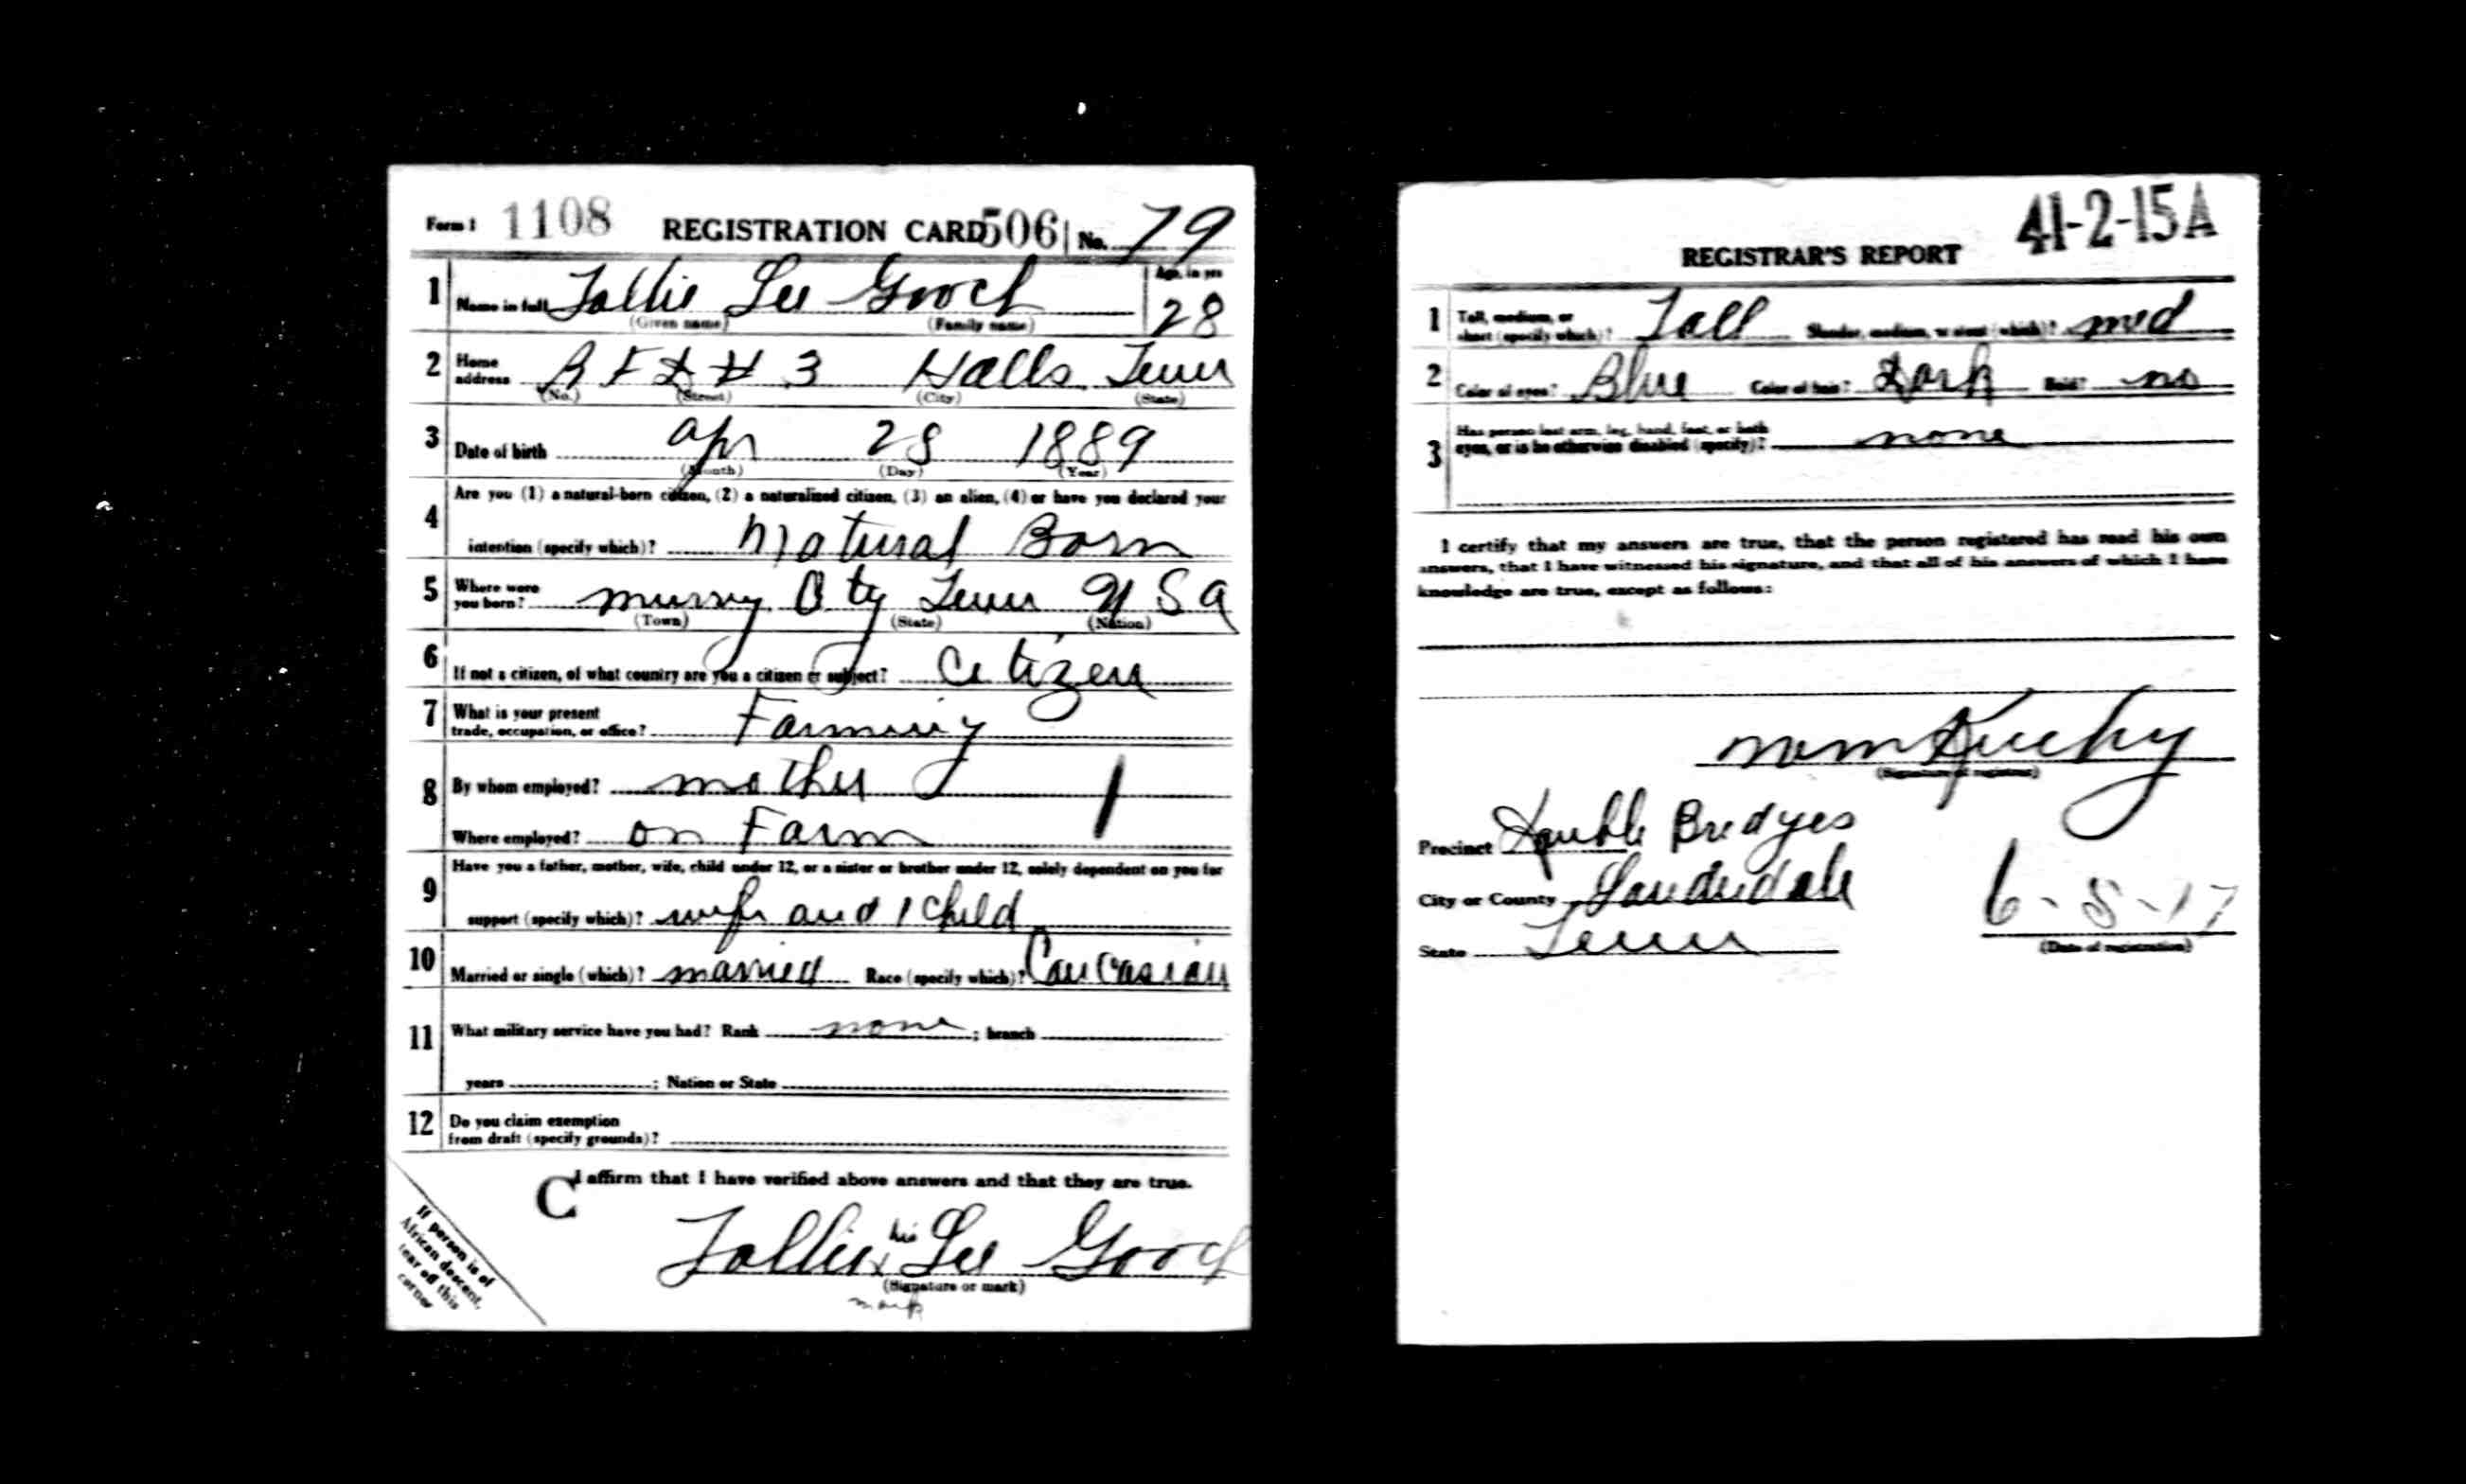 Form 1 1108 REGISTRATION CARD 506 No. 79
1 Name in full Tollie Lee Gooch Age, in yrs
(Given name) (Family name) 28
2 Home address R F D # 3 Halls Tenn
(No.) (Street) (City) (State)
3 Date of birth Apr 28 1889
(Month) (Day) (Year)
4 Are you (1) a natural-born citizen, (2) a naturalized citizen, (3) an alien, (4) or have you declared your
intention (specify which)? Natural Born
5 Where were you born? Murry City Tenn U S A
(Town) (State) (Nation)
6 If not a citizen, of what country are you a citizen or subject? Citizen
7 What is your present
trade, occupation, or office? Farming
8 By whom employed? mother
Where employed? on Farm
9 Have you a father, mother, wife, child under 12, or a sister or brother under 12, solely dependent on you for
support (specify which)? wife and 1 child
10 Married or single (which)? married Race (specify which)? Caucasian
11 What military service have you had? Rank none ; branch
years ; Nation or State
12 Do you claim exemption
from draft (specify grounds)?
C I affirm that I have verified above answers and that they are true.
Tollie his x Lee Gooch
(Signature or mark)
mark
If person is of
African descent,
tear off this
corner
41-2-15A
REGISTRAR'S REPORT
1 Tall, medium, or
short (specify which)? Tall Slender, medium, or stout (which)? med
2 Color of eyes? Blue Color of hair? Dark Bald? no
3 Has person lost arm, leg, hand, foot, or both
eyes, or is he otherwise disabled (specify)? none
I certify that my answers are true, that the person registered has read his own
answers, that I have witnessed his signature, and that all of his answers of which I have
knowledge are true, except as follows:
(Signature of registrar)
Precinct Double Bridges
City or County Lauderdale
State Tenn
6-5-17
(Date of registration)